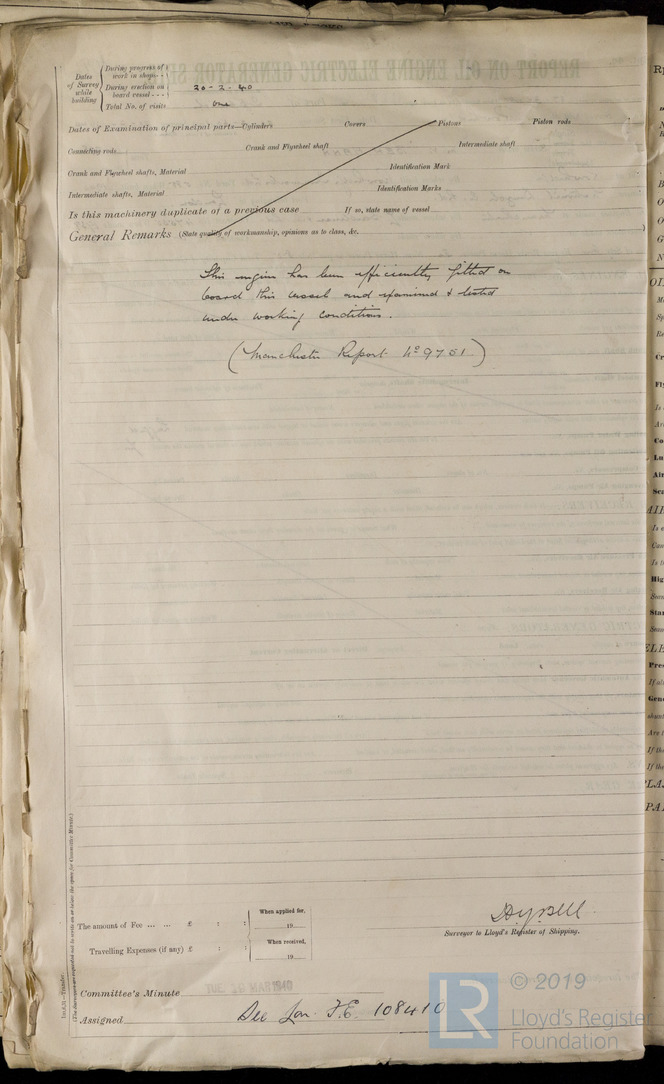 Dates of Survey while building
During progress of work in shops - -
During erection on board vessel - - - 20-2-40
Total No. of visits one
Dates of Examination of principal parts—Cylinders Covers Pistons Piston rods
Connecting rods Crank and Flywheel shaft Intermediate shaft
Crank and Flywheel shafts, Material Identification Mark
Intermediate shafts, Material Identification Marks
Is this machinery duplicate of a previous case If so, state name of vessel
General Remarks (State quality of workmanship, opinions as to class, &c.
This engine has been efficiently fitted on
board this vessel and examined & tested
under working conditions.
(Manchester Report No 9751)
The amount of Fee ... ... £ : :
When applied for,
19
Travelling Expenses (if any) £ : :
When received,
19
Surveyor to Lloyd's Register of Shipping.
Committee's Minute TUE 26 MAR 1940
Assigned See Lon. F.E. 108410
(The Surveyors are requested not to write on or below the space for Committee's Minute.)
LR
© 2019
Lloyd's Register
Foundation